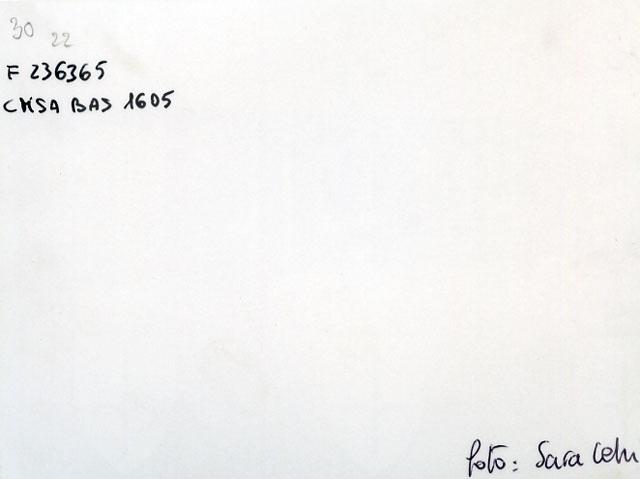 30 22
F 236365
CMSA BAS 1605
foto: Sara